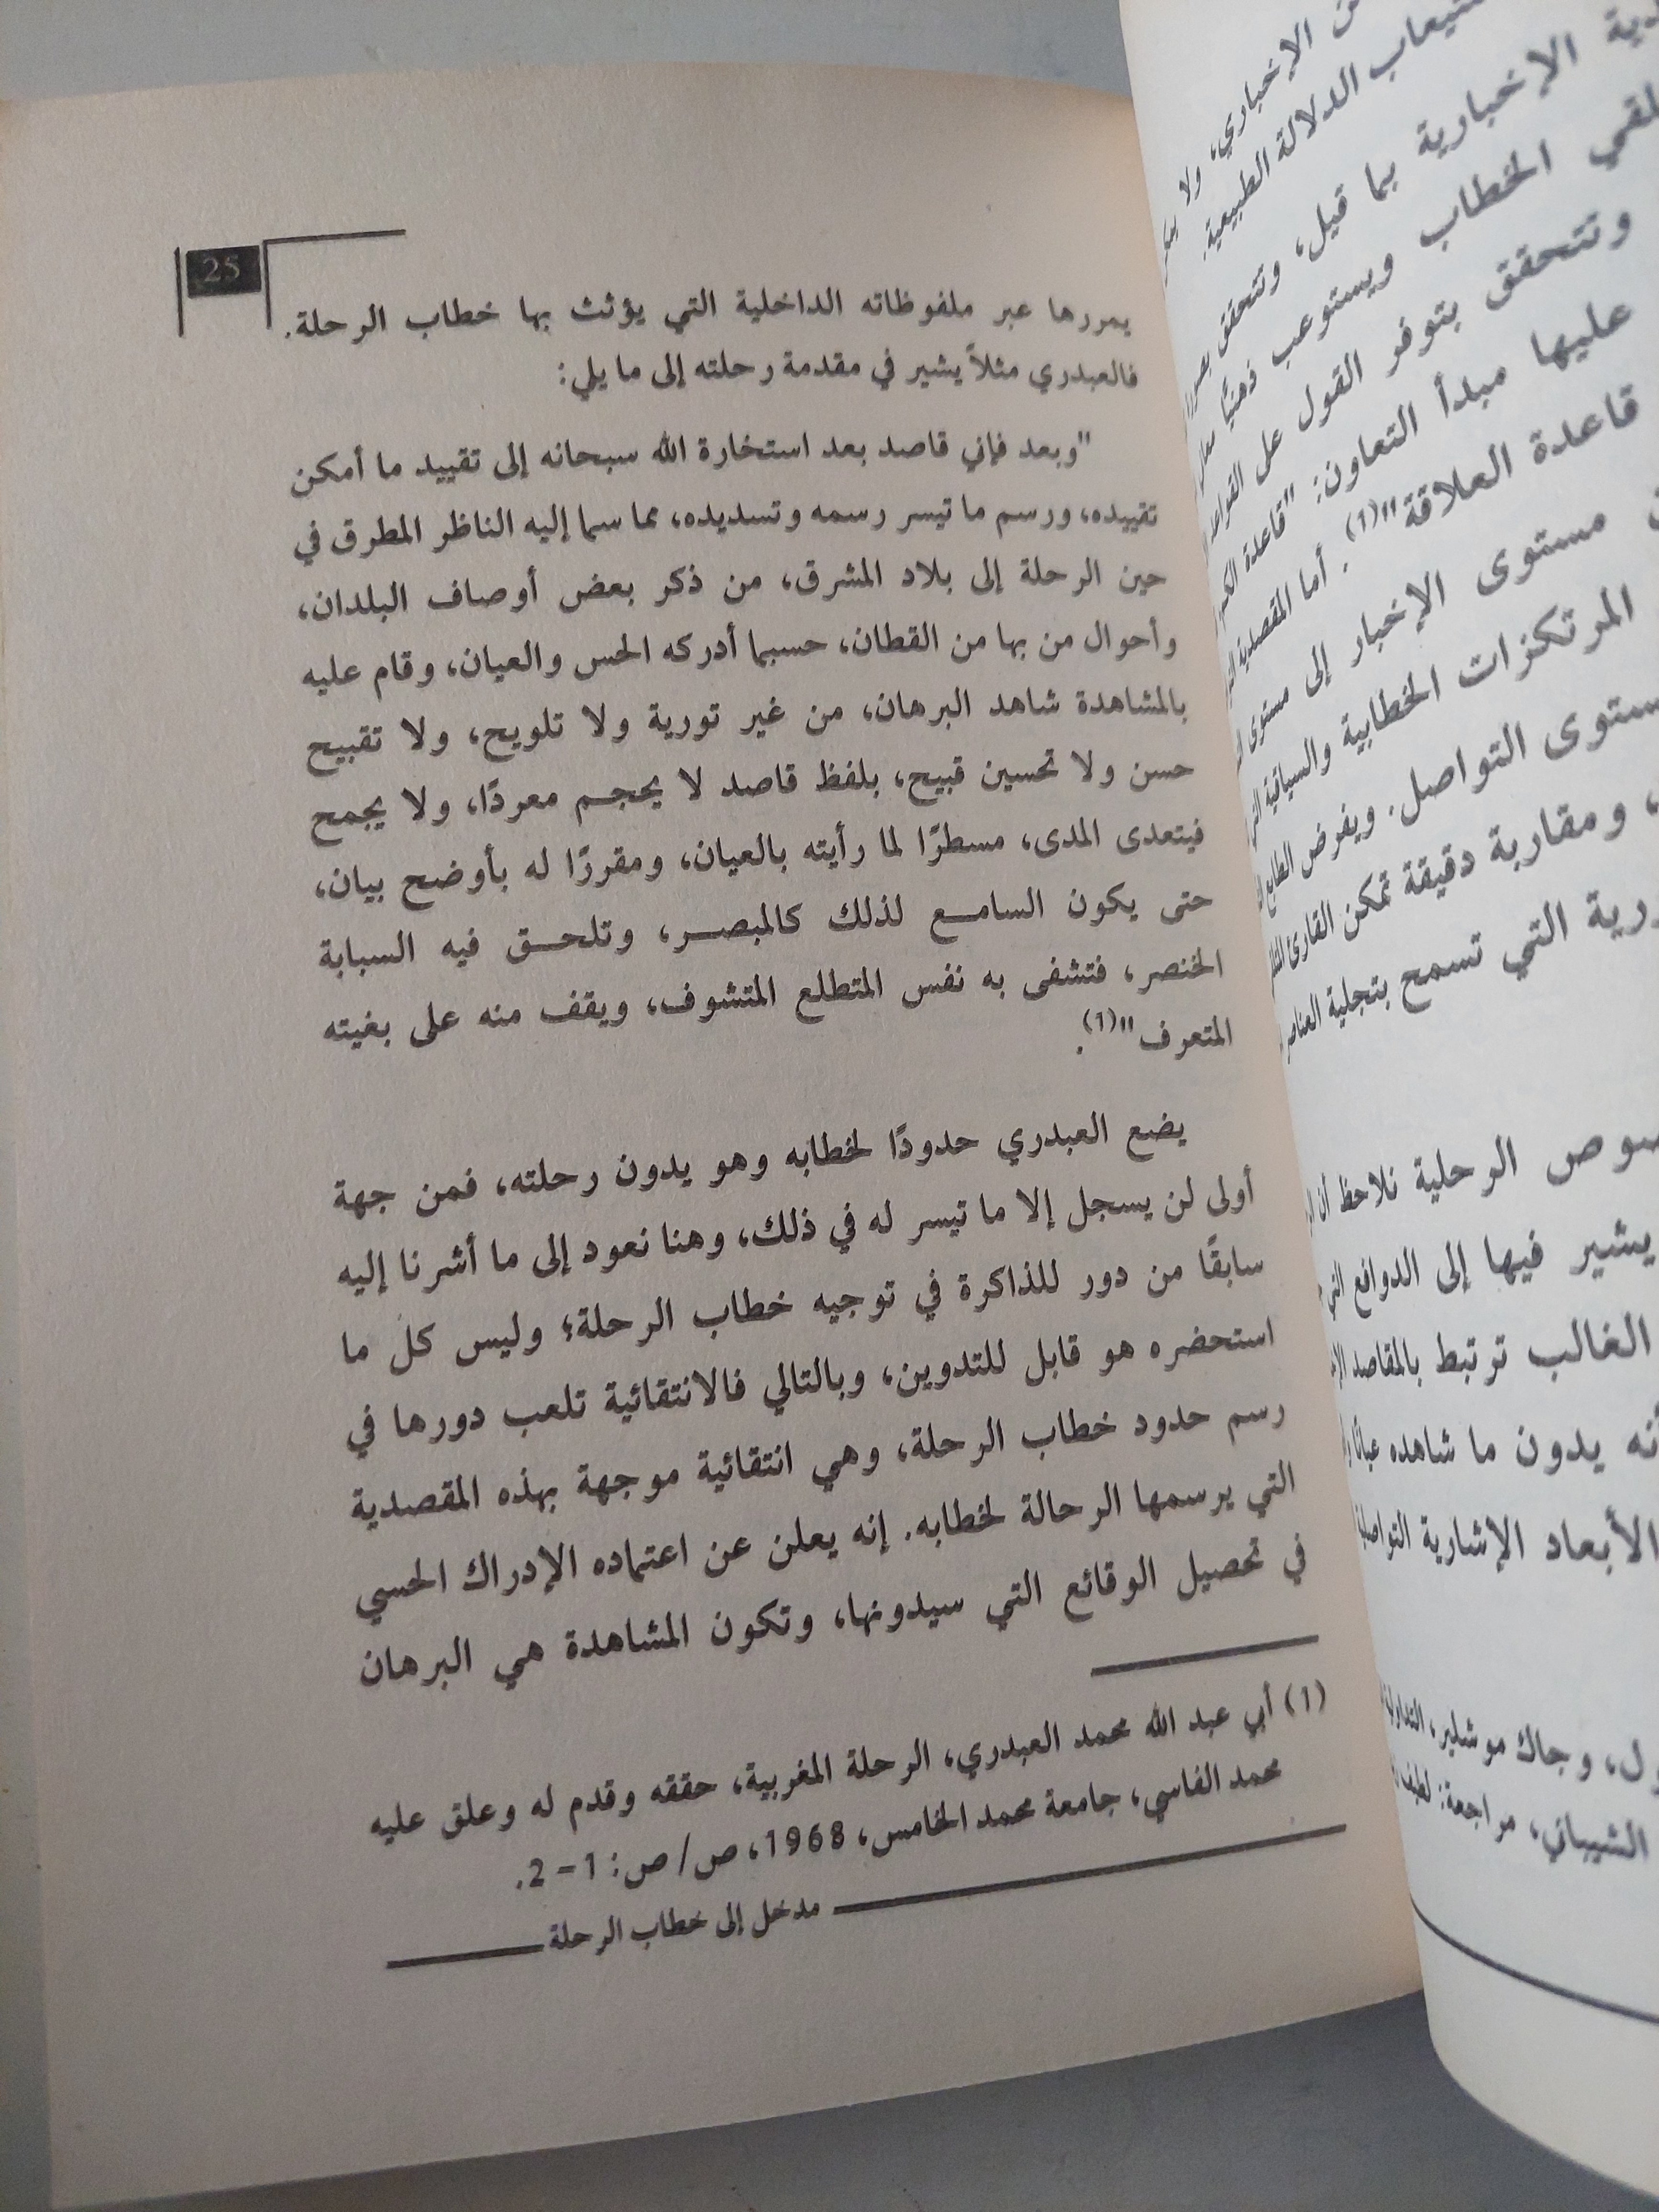 25
يمررها عبر ملفوظاته الداخلية التي يؤثث بها خطاب الرحلة.
فالعبدري مثلاً يشير في مقدمة رحلته إلى ما يلي:
"وبعد فإني قاصد بعد استخارة الله سبحانه إلى تقييد ما أمكن
تقييده، ورسم ما تيسر رسمه وتسديده، مما سما إليه الناظر المطرق في
حين الرحلة إلى بلاد المشرق، من ذكر بعض أوصاف البلدان،
وأحوال من بها من القطان، حسبما أدركه الحس والعيان، وقام عليه
بالمشاهدة شاهد البرهان، من غير تورية ولا تلويح، ولا تقبيح
حسن ولا تحسين قبيح، بلفظ قاصد لا يحجم معردًا، ولا يجمح
فيتعدى المدى، مسطرًا لما رأيته بالعيان، ومقررًا له بأوضح بيان،
حتى يكون السامع لذلك كالمبصر، وتلحق فيه السبابة
الخنصر، فتشفى به نفس المتطلع المتشوف، ويقف منه على بغيته
المتعرف"(1).
يضع العبدري حدودًا لخطابه وهو يدون رحلته، فمن جهة
أولى لن يسجل إلا ما تيسر له في ذلك، وهنا نعود إلى ما أشرنا إليه
سابقًا من دور للذاكرة في توجيه خطاب الرحلة؛ وليس كل ما
استحضره هو قابل للتدوين، وبالتالي فالانتقائية تلعب دورها في
رسم حدود خطاب الرحلة، وهي انتقائية موجهة بهذه المقصدية
التي يرسمها الرحالة لخطابه. إنه يعلن عن اعتماده الإدراك الحسي
في تحصيل الوقائع التي سيدونها، وتكون المشاهدة هي البرهان
(1) أبي عبد الله محمد العبدري، الرحلة المغربية، حققه وقدم له وعلق عليه
محمد الفاسي، جامعة محمد الخامس، 1968، ص/ص: 1-2.
مدخل إلى خطاب الرحلة
الإخباري، ولا
الدلالة الطبيعية.
الإخبارية بما قيل، وتتحقق
الخطاب ويستوعب ذهنيًا
وتتحقق بتوفر القول على القواعد
عليها مبدأ التعاون: "قاعدة الكم
قاعدة العلاقة"(1). أما المقصدية
مستوى الإخبار إلى مستوى
المرتكزات الخطابية والسياقية
التواصل. ويفرض الطابع
، ومقاربة دقيقة تمكن القارئ
التي تسمح بتجلية العناصر
الرحلية نلاحظ أن
يشير فيها إلى الدوافع
الغالب ترتبط بالمقاصد
يدون ما شاهده عيانًا
الأبعاد الإشارية
، وجاك موشلير،
الشيباني، مراجعة: لطيف